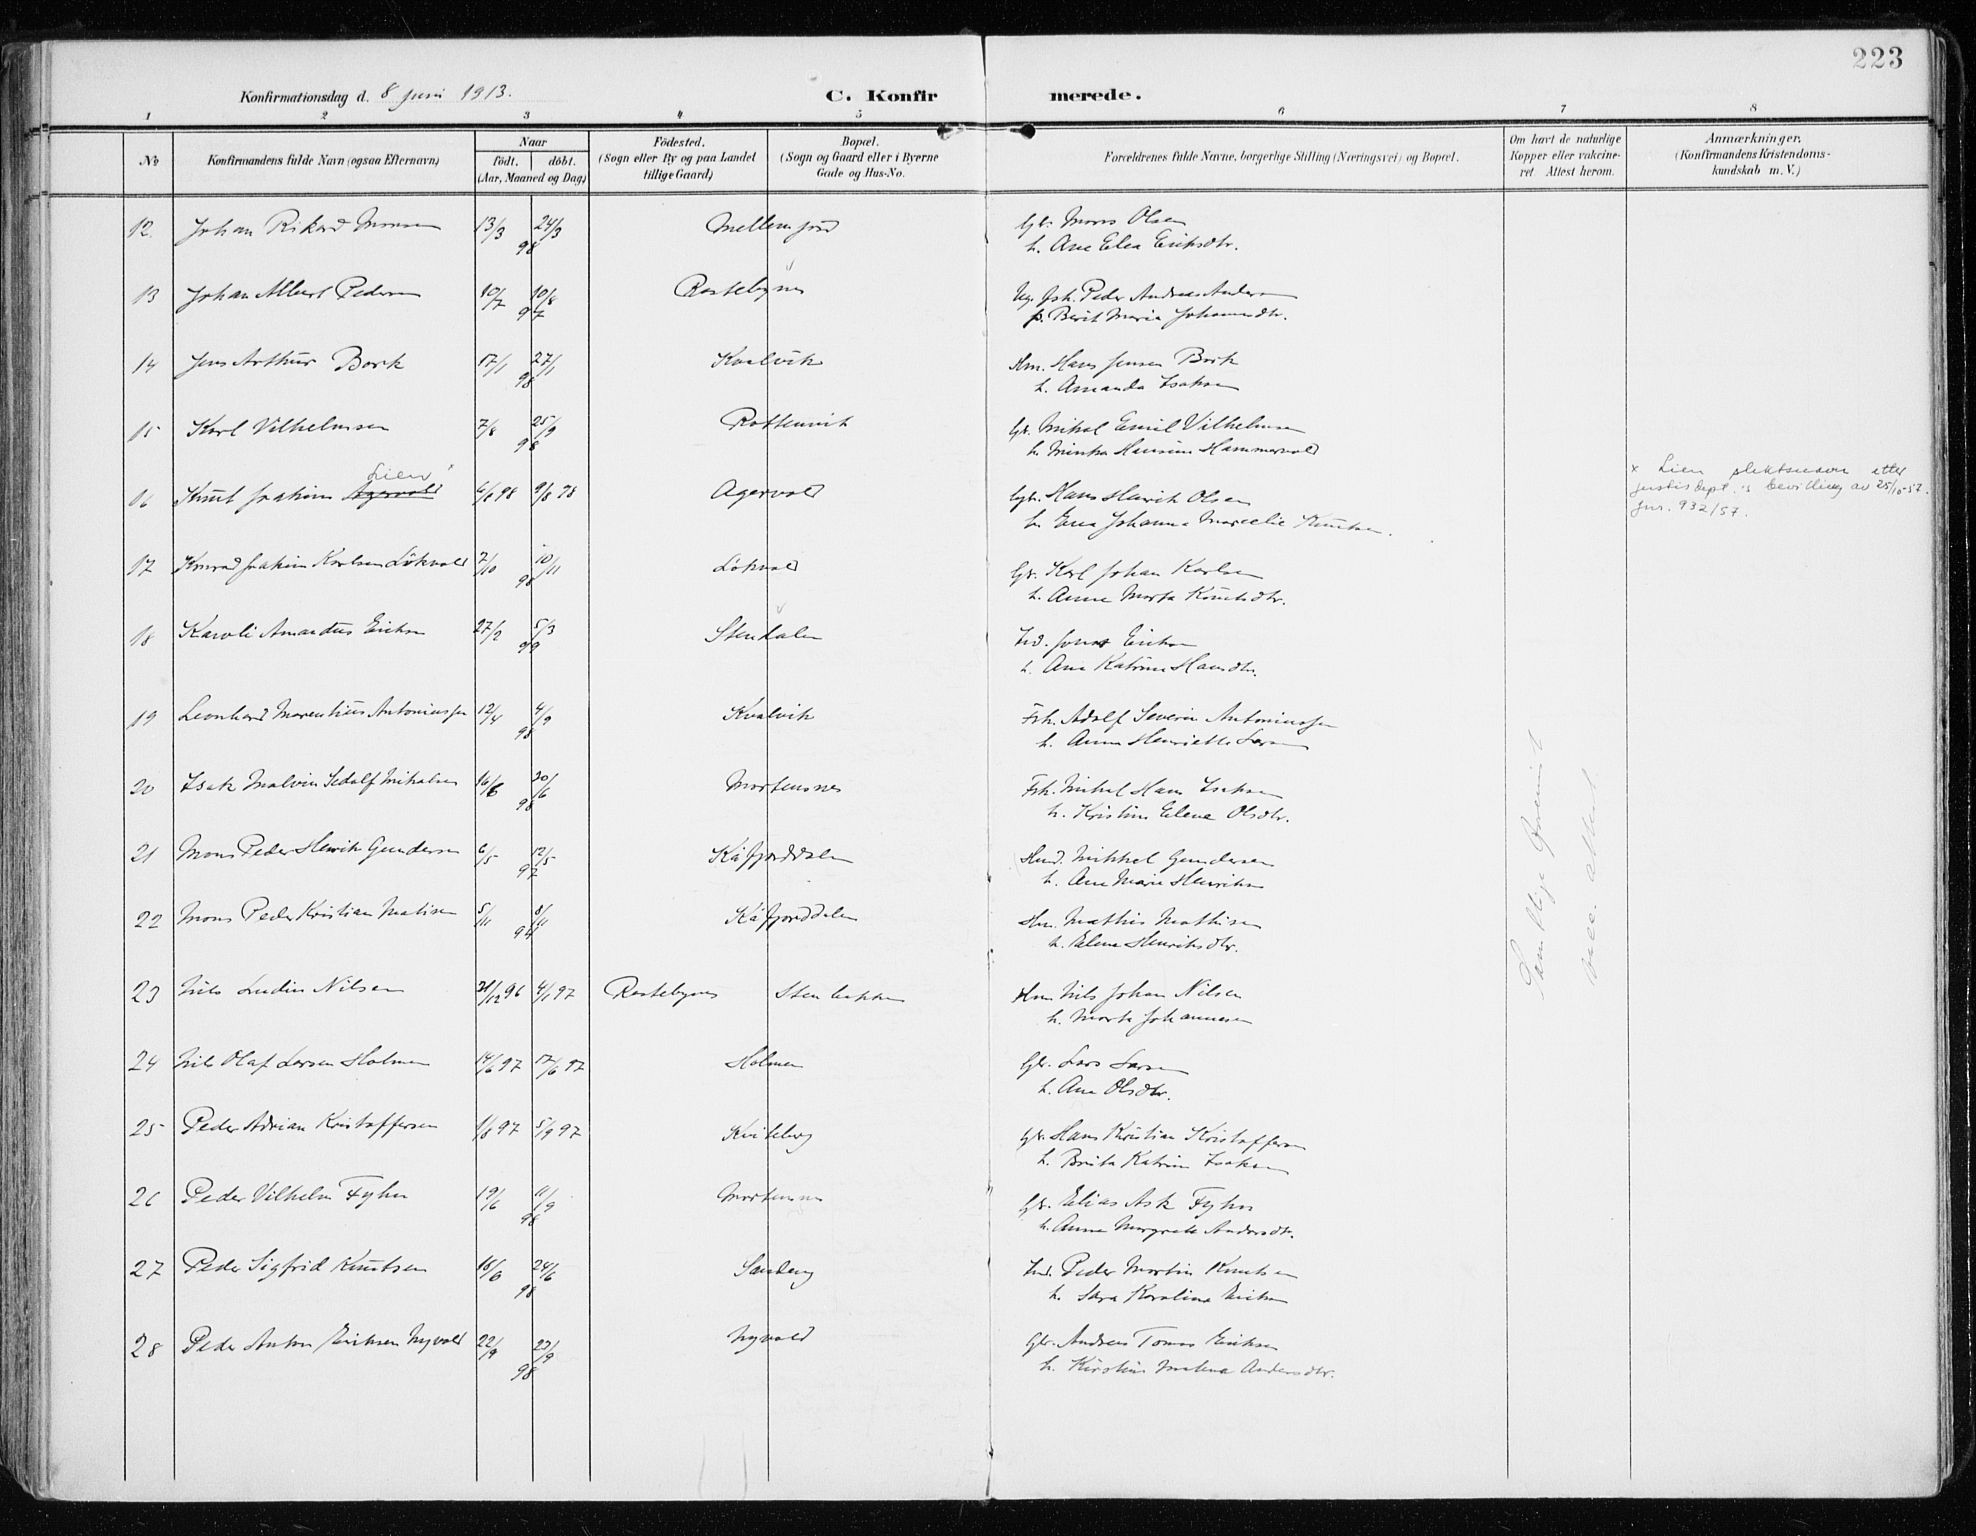 223
Konfirmationsdag d. 8 juni 1913.
C. Konfirmerede.
1 2 3 4 5 6 7 8
No
Konfirmandens fulde Navn (ogsaa Efternavn)
Naar
födt. döbt.
(Aar, Maaned og Dag)
Födested.
(Sogn eller By og paa Landet
tillige Gaard)
Bopæl.
(Sogn og Gaard eller i Byerne
Gade og Hus-No.
Forældrenes fulde Navne, borgerlige Stilling (Næringsvei) og Bopæl.
Om havt de naturlige
Kopper eller vakcine-
ret. Attest herom.
Anmærkninger.
(Konfirmandens Kristendoms-
kundskab m. V.)
12. Johan Rikard Monsen 13/3 24/3 98 Mellemjord Gbr. Mons Olsen
h. Ane Elea Eriksdtr.
13 Johan Albert Pedersen 10/7 10/8 97 Rastebynes Peder Andreas Andersen
p. Berit Maria Johannesdtr.
14 Jens Arthur Bork 17/1 27/1 98 Kvalvik Hm. Hans Jensen Bork
h. Amanda Isaksen
15 Karl Vilhelmsen 7/8 25/9 98 Rottenvik Gbr. Mikal Emil Vilhelmsen
h. Minka Hansine Hammervold
16 Knut Joakim Agervold Lien x 6/6 98 9/8 98 Agervold Gbr. Hans Henrik Olsen
h. Ena Johanna Marcelie Knutsen.
x Lien slektsnavn etter
justisdept.'s bevilling av 25/10-57.
jnr. 932/57.
17 Konrad Joakim Karlsen Lökvold 7/10 10/11 98 Lökvold Gbr. Karl Johan Karlsen
h. Anne Marta Knutsdtr.
18 Karoli Amandus Eriksen 27/2 5/3 99 Stendalen Ind. Jonas Eriksen
h. Ane Katrine Hansdtr.
19 Leonhard Marentius Antoniussen 12/4 4/9 98 Kvalvik Fsh. Adolf Severin Antoniussen
h. Anna Henriette Larsen
20 Isak Malvin Sedolf Mikalsen 16/6 20/6 98 Mortensnes Fsh. Mikal Hans Isaksen
h. Kristine Elene Olsdtr.
21 Mons Peder Henrik Gundersen 6/5 12/5 97 Kåfjorddalen Hmd. Mikkel Gundersen
h. Ane Marie Henriksen
22 Mons Peder Kristian Matisen 5/11 8/11 94 Kåfjorddalen Hm. Mathis Mathisen
h. Elene Henriksdtr.
23 Nils Ludin Nilsen 31/12 96 4/1 97 Rastebynes Stenbakken Hm Nils Johan Nilsen
h. Marta Johannesen
24 Nils Olaf Larsen Holmen 14/6 97 17/6 97 Holmen Gbr. Lars Larsen
h. Ane Olsdtr.
25 Peder Adrian Kristoffersen 1/8 97 5/9 97 Kviteberg Gbr. Hans Kristian Kristoffersen
h. Brita Katrine Isaksen
26 Peder Vilhelm Fyhn 19/6 11/9 98 Mortensnes Gbr. Elias Ask Fyhn
h. Anne Margrete Andersdtr.
27 Peder Sigfrid Knutsen 16/6 24/6 98 Sandeng Ind. Peder Martin Knutsen
h. Sara Karoline Eriksen
28 Peder Anton Eriksen Nyvold 22/9 23/9 98 Nyvold Gbr. Andreas Tomas Eriksen
h. Kirstine Malena Andersdtr.
Samtlige fremvist
vacc. attest